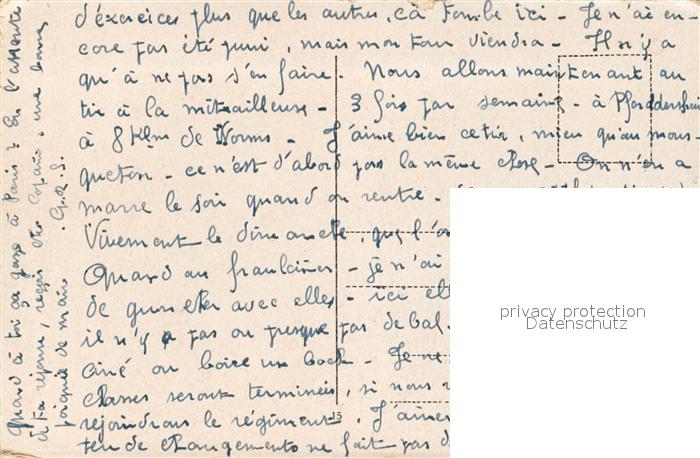 d'exercices plus que les autres, çà tombe ici - Je n'ai en-
core pas été puni, mais mon tour viendra - Il n'y a
qu'à ne pas s'en faire - Nous allons maintenant au
tir à la mitrailleuse - 3 fois par semaine - à Pfeddersheim
à 8 Klm de Worms - J'aime bien ce tir, mieux qu'au mous-
queton - ce n'est d'abord pas la même chose - On n'en a
marre le soir quand on rentre -
Vivement le dimanche, que l'on
Quand au fraulaines - je n'ai
de gunether avec elles - ici ell
il n'y a pas ou presque pas de bal.
ciné ou boire un bock - Je ne
classes seront terminées, si nous
rejoindrons le régiment. J'aimer
peu de changements ne fait pas d
15
Quand à toi ça gaze à Paris? En l'attente
de ta réponse, reçois cher Copain, une bonne
poignée de main.
privacy protection
Datenschutz